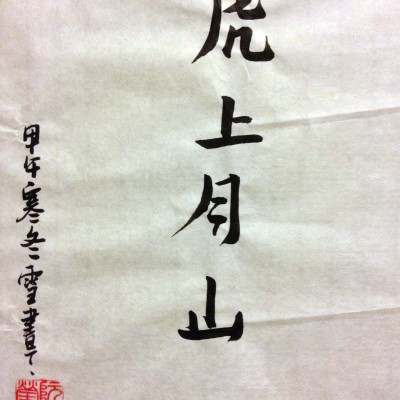 虎上月山
甲午寒冬雪書